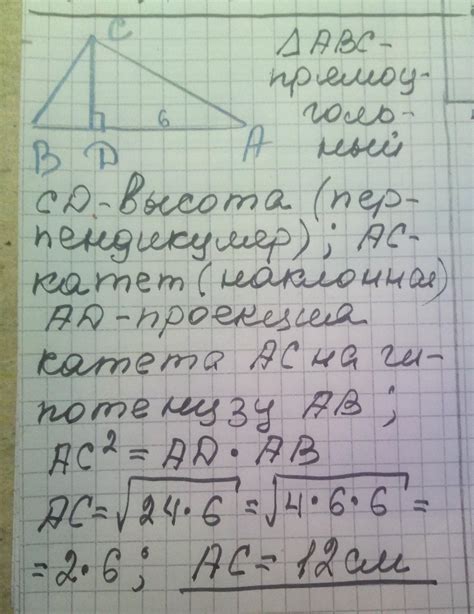 C
ΔABC-
прямоу-
голь-
ный
6
B D A
CD-высота (пер-
пендикумер); AC-
катет (наклонная)
AD-проекция
катета AC на ги-
потенузу AB;
AC² = AD · AB
AC = √24·6 = √4·6·6 =
= 2·6; AC = 12 см